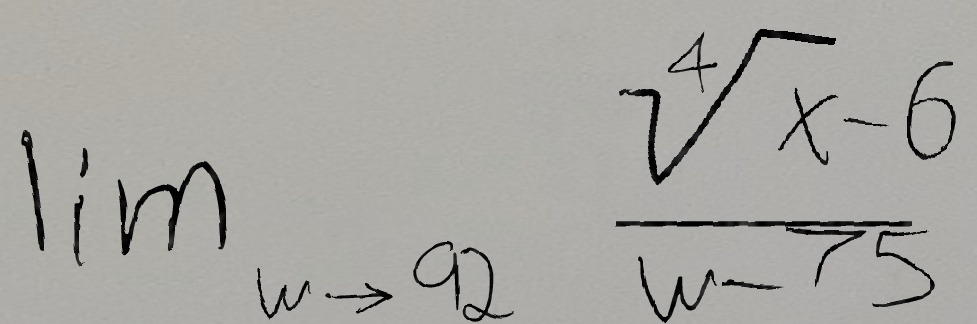 \lim_{w \to 92} \frac{\sqrt[4]{x-6}}{w-75}